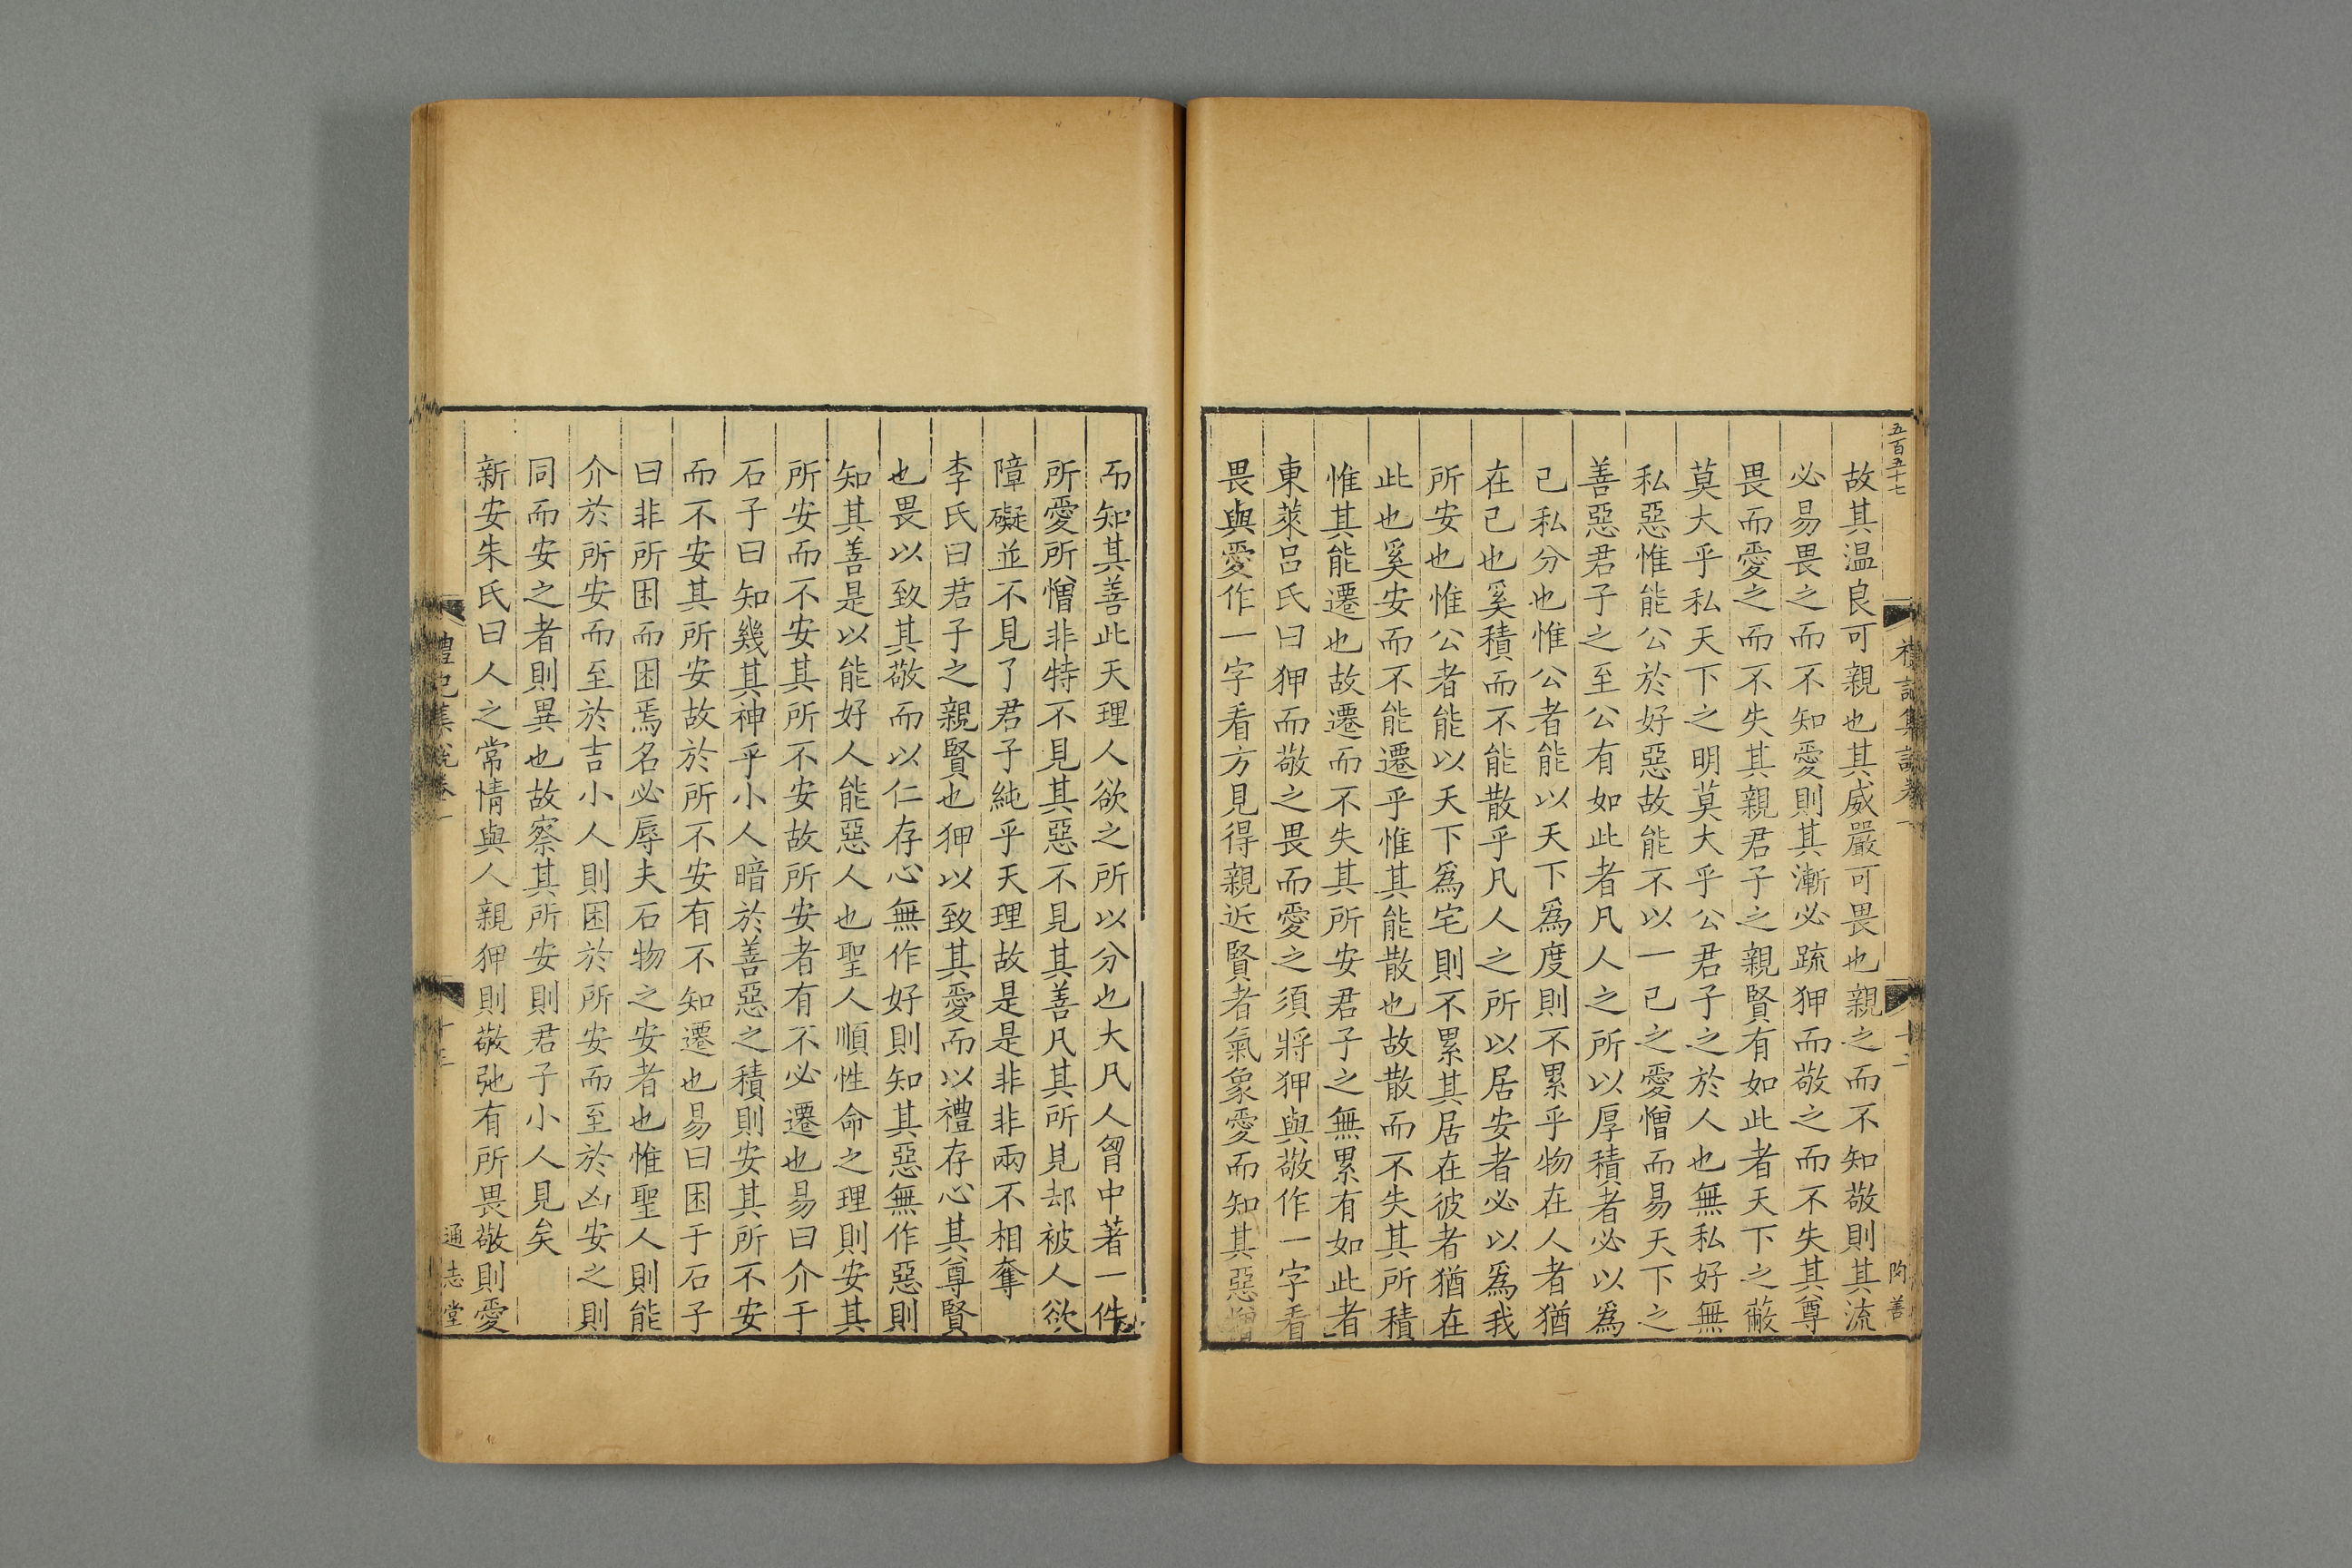 五百五十七
禮記集說卷一
十二
陶善
故其温良可親也其威嚴可畏也親之而不知敬則其流
必易畏之而不知愛則其漸必疏狎而敬之而不失其尊
畏而愛之而不失其親君子之親賢有如此者天下之蔽
莫大乎私天下之明莫大乎公君子之於人也無私好無
私惡惟能公於好惡故能不以一己之愛憎而易天下之
善惡君子之至公有如此者凡人之所以厚積者必以爲
己私分也惟公者能以天下爲度則不累乎物在人者猶
在己也奚積而不能散乎凡人之所以居安者必以爲我
所安也惟公者能以天下爲宅則不累其居在彼者猶在
此也奚安而不能遷乎惟其能散也故散而不失其所積
惟其能遷也故遷而不失其所安君子之無累有如此者
東萊吕氏曰狎而敬之畏而愛之須將狎與敬作一字看
畏與愛作一字看方見得親近賢者氣象愛而知其惡憎
而知其善此天理人欲之所以分也大凡人胷中著一件
所愛所憎非特不見其惡不見其善凡其所見却被人欲
障礙並不見了君子純乎天理故是是非非兩不相奪
李氏曰君子之親賢也狎以致其愛而以禮存心其尊賢
也畏以致其敬而以仁存心無作好則知其惡無作惡則
知其善是以能好人能惡人也聖人順性命之理則安其
所安而不安其所不安故所安者有不必遷也易曰介于
石子曰知幾其神乎小人暗於善惡之積則安其所不安
而不安其所安故於所不安有不知遷也易曰困于石子
曰非所困而困焉名必辱夫石物之安者也惟聖人則能
介於所安而至於吉小人則困於所安而至於凶安之則
同而安之者則異也故察其所安則君子小人見矣
新安朱氏曰人之常情與人親狎則敬弛有所畏敬則愛
禮記集說卷一
十三
通志堂